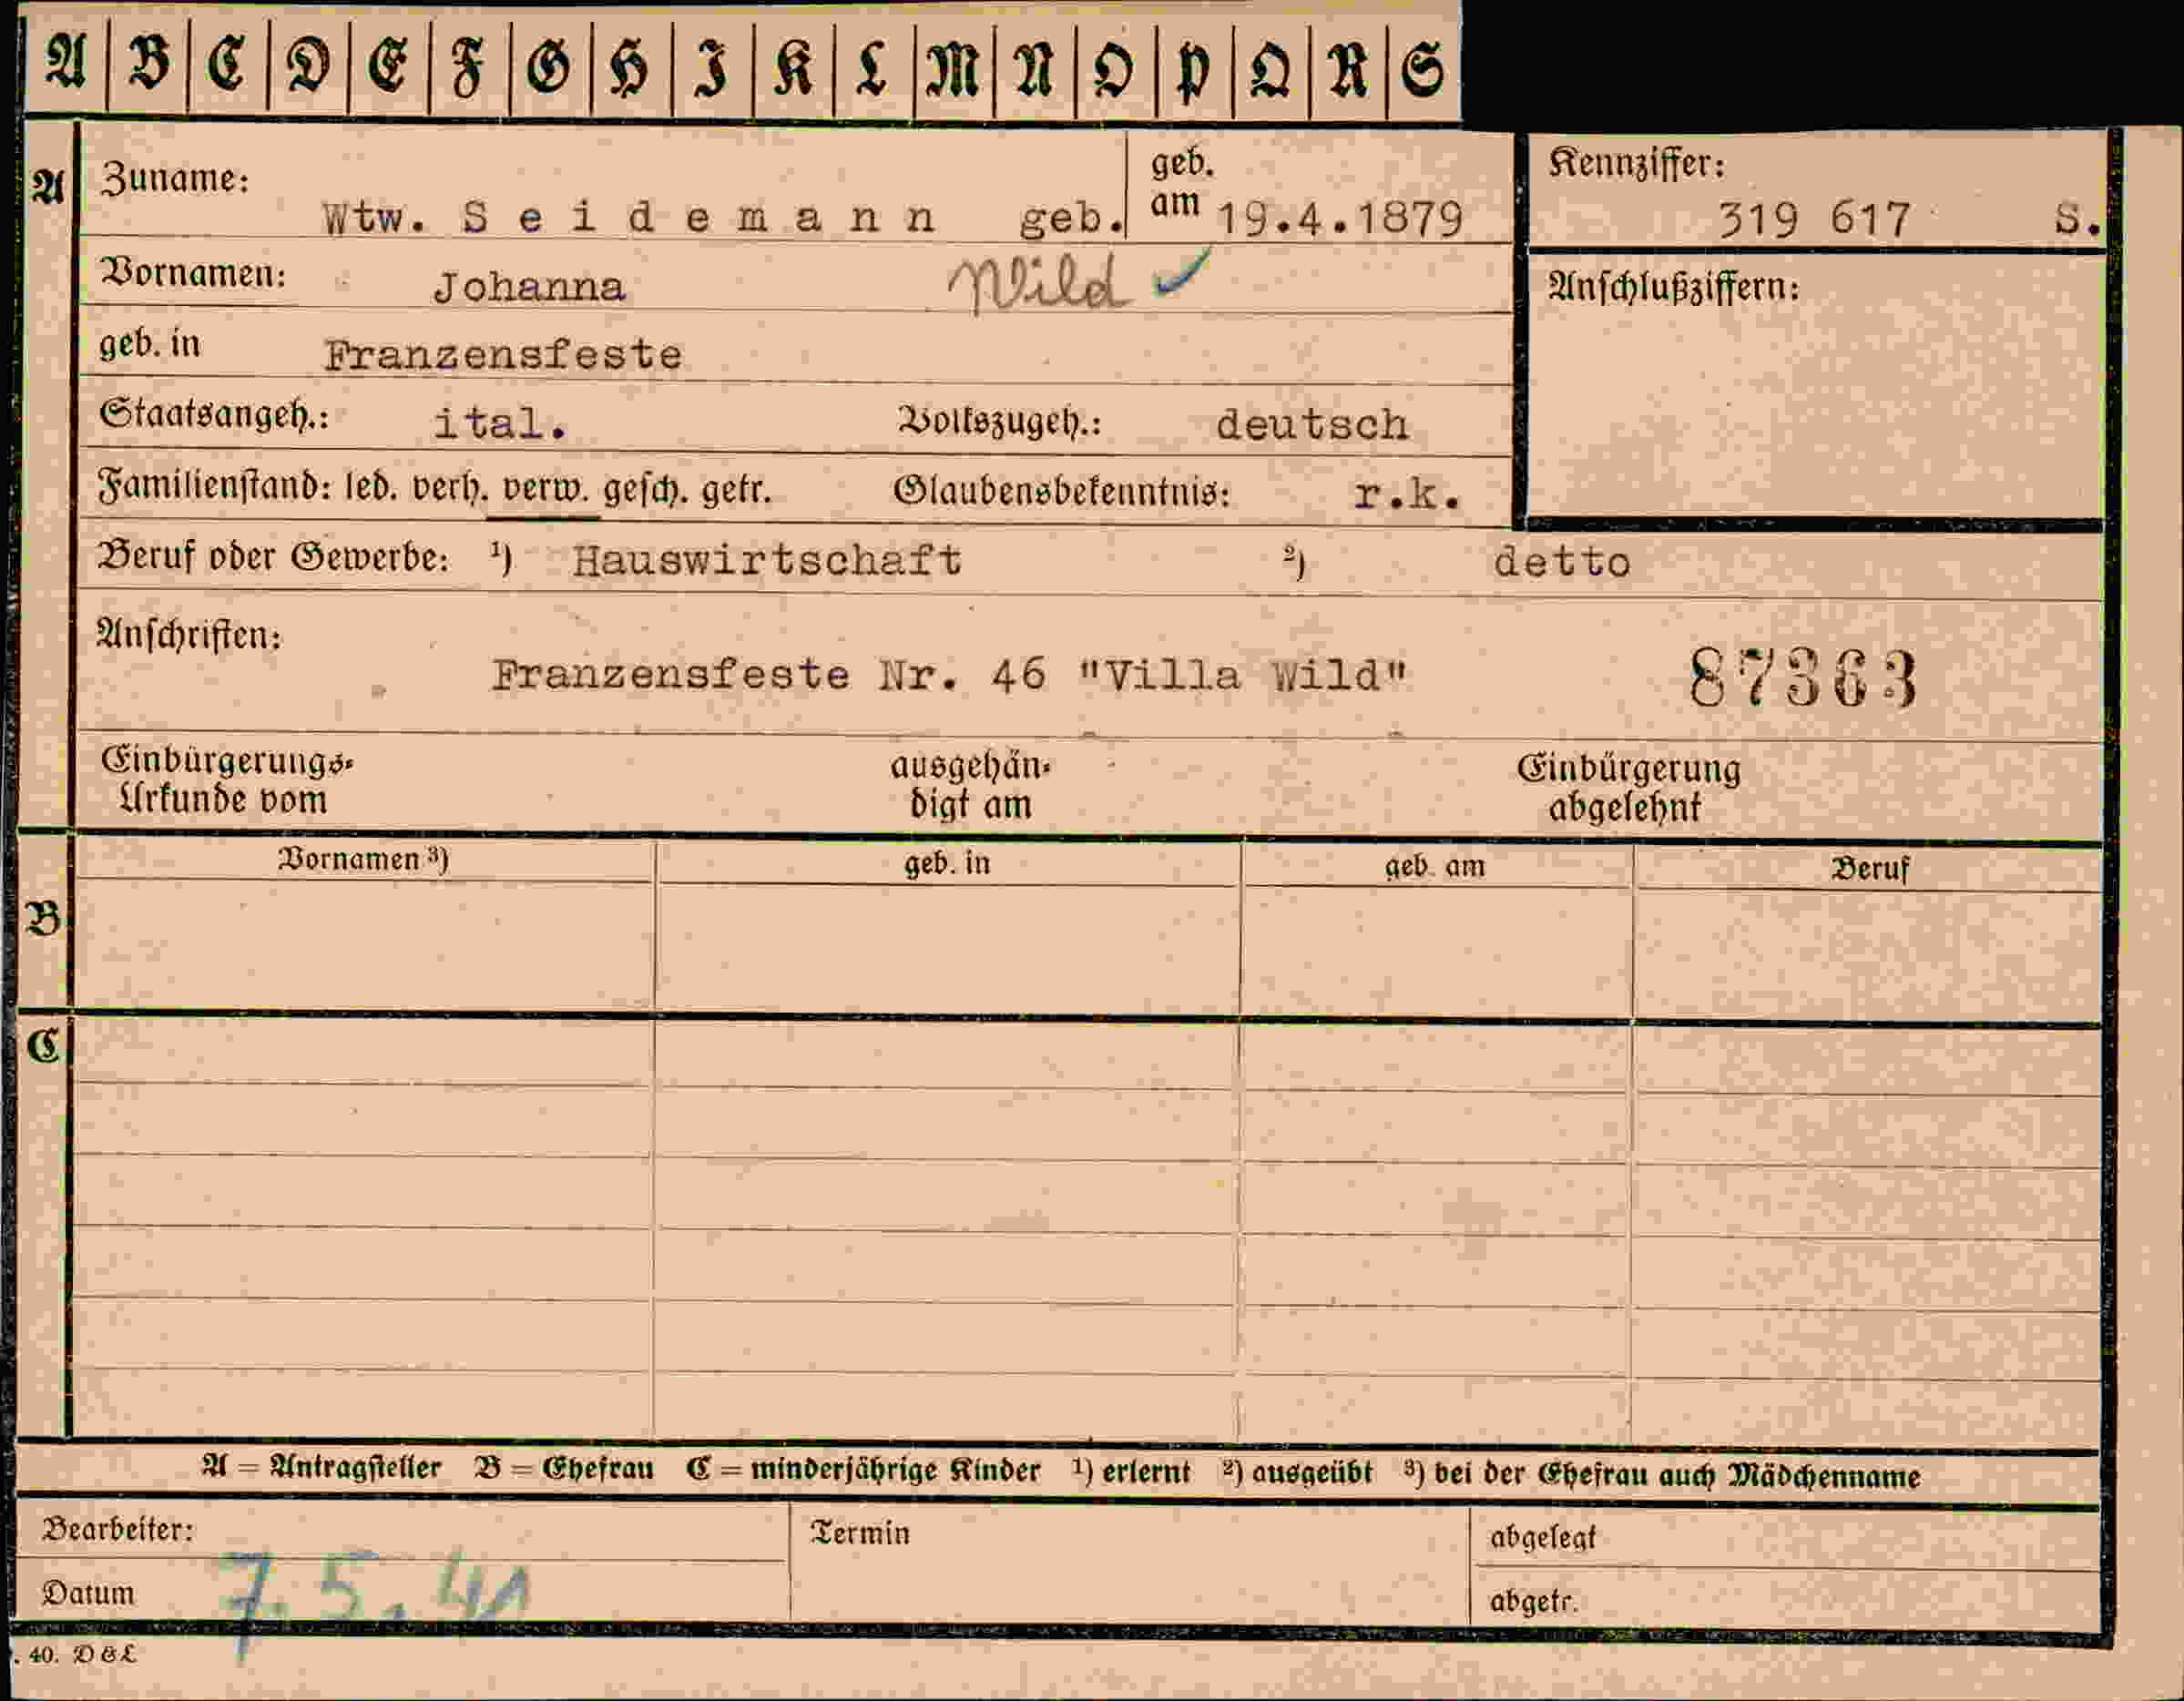 A B C D E F G H I K L M N O P Q R S
A Zuname: Wtw. S e i d e m a n n geb. geb. am 19.4.1879 Kennziffer: 319 617 S.
Vornamen: Johanna Wild ✓ Anschlußziffern:
geb. in Franzensfeste
Staatsangeh.: ital. Volkszugeh.: deutsch
Familienstand: led. verh. verw. gesch. getr. Glaubensbekenntnis: r.k.
Beruf oder Gewerbe: ¹) Hauswirtschaft ²) detto
Anschriften: Franzensfeste Nr. 46 "Villa Wild" 87363
Einbürgerungs- ausgehän- Einbürgerung
Urkunde vom digt am abgelehnt
Vornamen ³) geb. in geb. am Beruf
B
C
A = Antragsteller B = Ehefrau C = minderjährige Kinder ¹) erlernt ²) ausgeübt ³) bei der Ehefrau auch Mädchenname
Bearbeiter: Termin abgelegt
Datum 7.5.41 abgetr.
. 40. D & L